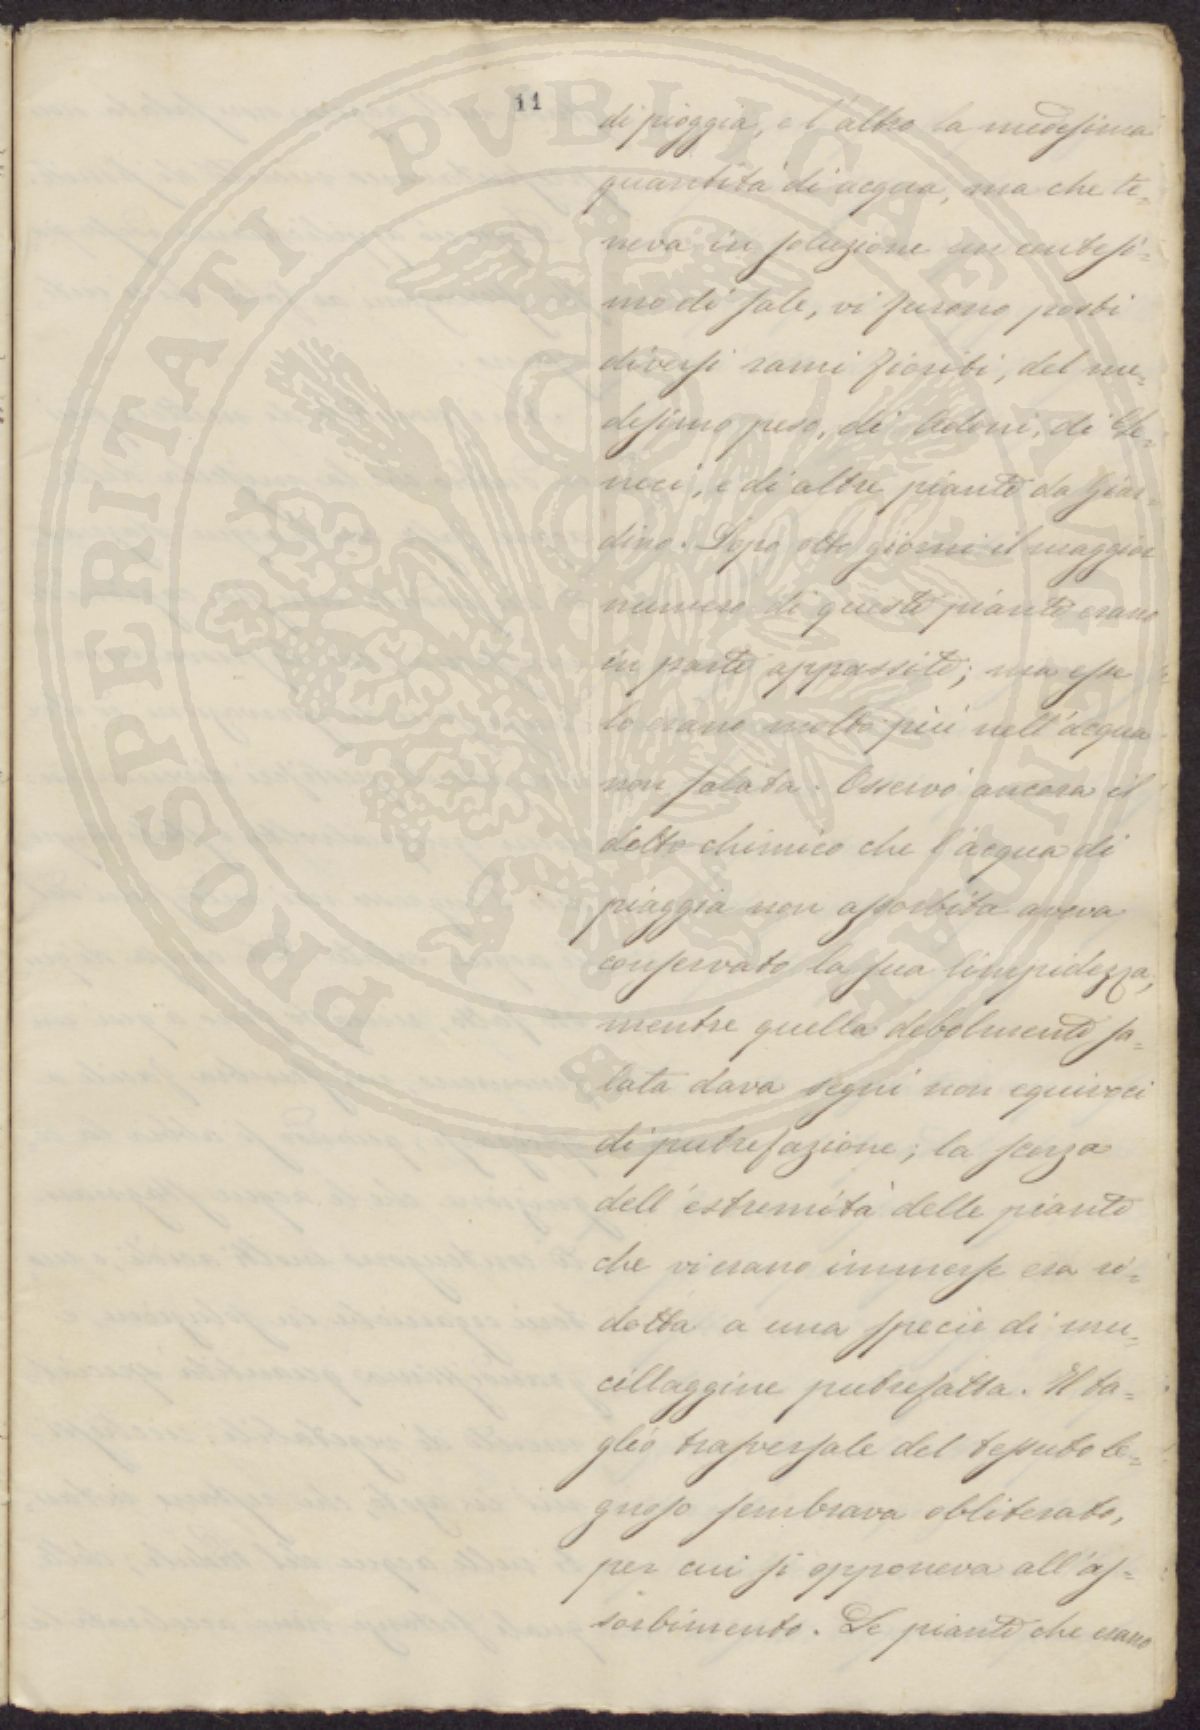 11
di pioggia, e l'altro la medesima
quantità di acqua, ma che te=
neva in soluzione un centesi=
mo di sale, vi furono posti
diversi rami fioriti, del me=
desimo peso, di Adoni, di Ge=
neci, e di altre piante da Giar=
dino. Dopo otto giorni il maggior
numero di queste piante erano
in parte appassite; ma esse
lo erano molto più nell'acqua
non salata. Osservò ancora il
detto chimico che l'acqua di
piaggia non assorbita aveva
conservato la sua limpidezza,
mentre quella debolmente sa=
lata dava segni non equivoci
di putrefazione; la scorza
dell'estremità delle piante
che vi erano immerse era ri=
dotta a una specie di mu=
cillaggine putrefatta. Il ta=
glio trasversale del tessuto le=
gnoso sembrava obliterato,
per cui si opponeva all'as=
sorbimento. Le piante che erano
PROSPERITATI PVBLICAE AVGENDAE